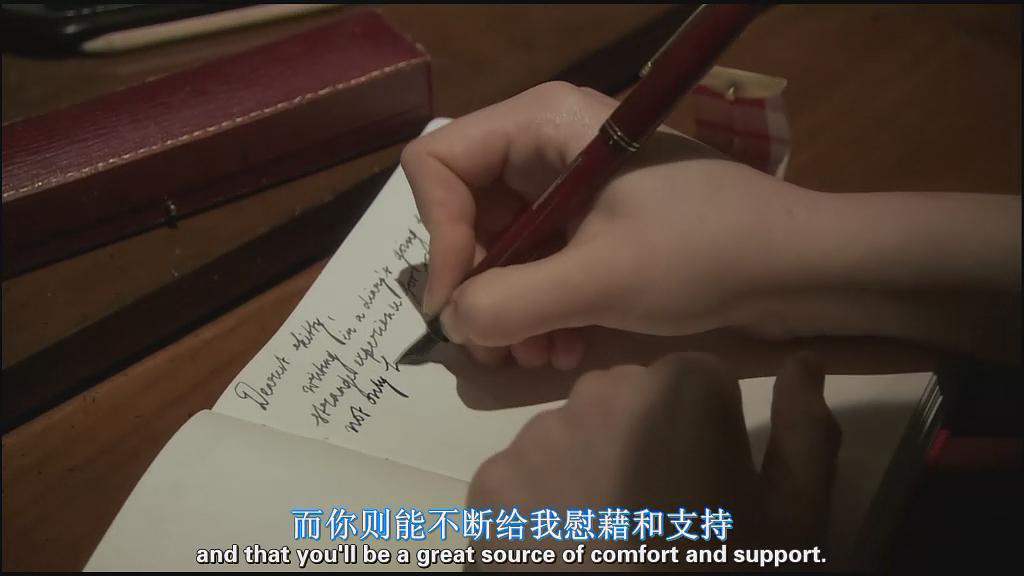 Dearest Kitty,
writing in a diary's going
strange experience for
not only
而你则能不断给我慰藉和支持
and that you'll be a great source of comfort and support.